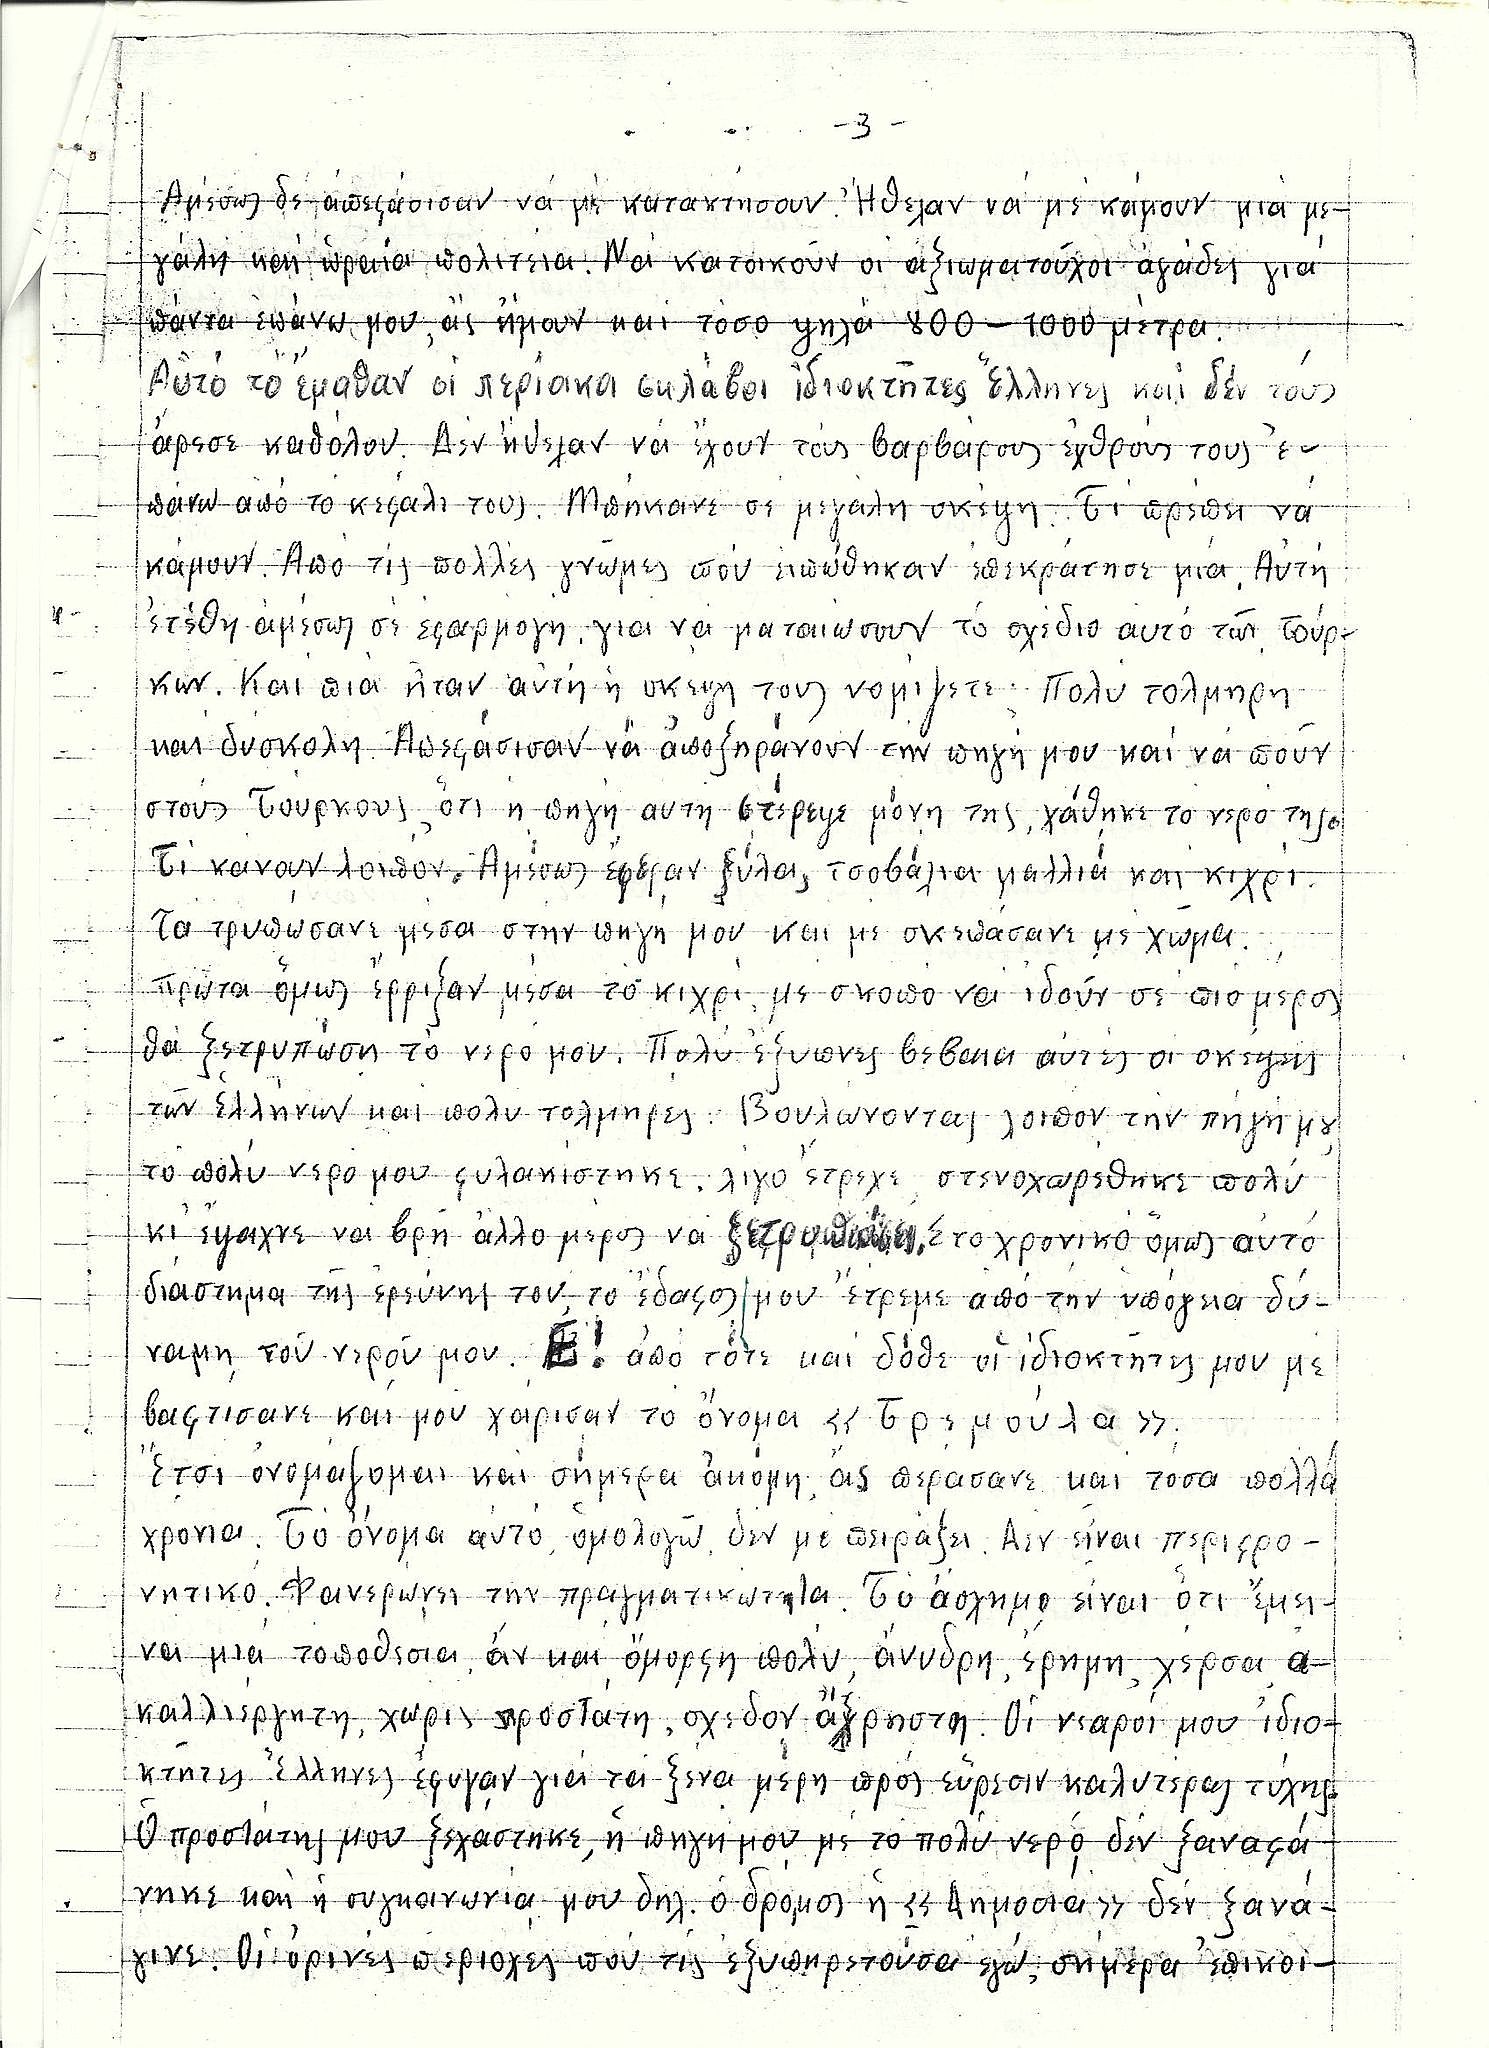 -3-
Ἀμέσως δέ ἀπεφάσισαν νά μέ κατακτήσουν. Ἤθελαν νά μέ κάμουν μιά με-
γάλη καί ὡραία πολιτεία. Νά κατοικοῦν οἱ ἀξιωματοῦχοι ἀγάδες γιά
πάντα ἐπάνω μου, ἄς ἤμουν καί τόσο ψηλά 800 - 1000 μέτρα.
Αὐτό τό ἔμαθαν οἱ περίακα σκλάβοι ἰδιοκτῆτες Ἕλληνες καί δέν τούς
ἄρεσε καθόλου. Δέν ἤθελαν νά ἔχουν τούς βαρβάρους ἐχθρούς τους ἐ-
πάνω ἀπό τό κεφάλι τους. Μπήκανε σέ μεγάλη σκέψη. Τί πρέπει νά
κάμουν. Ἀπό τίς πολλές γνῶμες πού εἰπώθηκαν ἐπεκράτησε μία. Αὐτή
ἐτέθη ἀμέσως σέ ἐφαρμογή, γιά νά ματαιώσουν τό σχέδιο αὐτό τῶν Τούρ-
κων. Καί πιά ἦταν αὐτή ἡ σκέψη τους νομίζετε. Πολύ τολμηρή
καί δύσκολη. Ἀπεφάσισαν νά ἀποξηράνουν τήν πηγή μου καί νά ποῦν
στούς Τούρκους, ὅτι ἡ πηγή αὐτή στέρεψε μόνη της, χάθηκε τό νερό της.
Τί κάναν λοιπόν. Ἀμέσως ἔφεραν ξύλα, τσοβάλια μαλλιά καί κιχρί.
Τά τρυπώσανε μέσα στήν πηγή μου καί μέ σκεπάσανε μέ χῶμα.
Πρῶτα ὅμως ἔρριξαν μέσα τό κιχρί, μέ σκοπό νά ἰδοῦν σέ πιό μέρος
θά ξετρυπώση τό νερό μου. Πολύ ἔξυπνες βέβαια αὐτές οἱ σκέψεις
τῶν Ἑλλήνων καί πολύ τολμηρές. Βουλώνοντας λοιπόν τήν πηγή μου
τό πολύ νερό μου φυλακίστηκε. λίγο ἔτρεχε, στενοχωρέθηκε πολύ
κι ἔψαχνε νά βρῆ ἄλλο μέρος νά ξετρυπώση. Στό χρονικό ὅμως αὐτό
διάστημα τῆς ἐρεύνης του, τό ἔδαφος μου ἔτρεμε ἀπό τήν υπόγεια δύ-
ναμη τοῦ νεροῦ μου. Ἐ! ἀπό τότε καί δόθε οἱ ἰδιοκτῆτες μου μέ
βαφτίσανε καί μοῦ χάρισαν τό ὄνομα << Τρεμούλα >>.
Ἔτσι ὀνομάζομαι καί σήμερα ἀκόμη, ἄς περάσανε καί τόσα πολλά
χρόνια. Τό ὄνομα αὐτό, ὁμολογῶ, δέν μέ πειράζει. Δέν εἶναι περιφρο-
νητικό. Φανερώνει τήν πραγματικώτητα. Τό ἄσχημο εἶναι ὅτι ἔμει-
να μιά τοποθεσία, ἄν καί ὄμορφη πολύ, ἄνυδρη, ἔρημη, χέρσα, ἀ-
καλλιέργητη, χωρίς προστάτη, σχεδόν ἄχρηστη. Οἱ νεαροί μου ἰδιο-
κτῆτες Ἕλληνες ἔφυγαν γιά τά ξένα μέρη πρός εὕρεσιν καλυτέρας τύχης.
Ὁ προστάτης μου ξεχάστηκε, ἡ πηγή μου μέ τό πολύ νερό δέν ξαναφά
νηκε καί ἡ συγκοινωνία μου δηλ. ὁ δρόμος ἡ << Δημοσιά >> δέν ξανά-
γινε. Οἱ ὀρινές περιοχές πού τίς ἐξυπηρετοῦσα ἐγώ, σήμερα ἐπικοι-